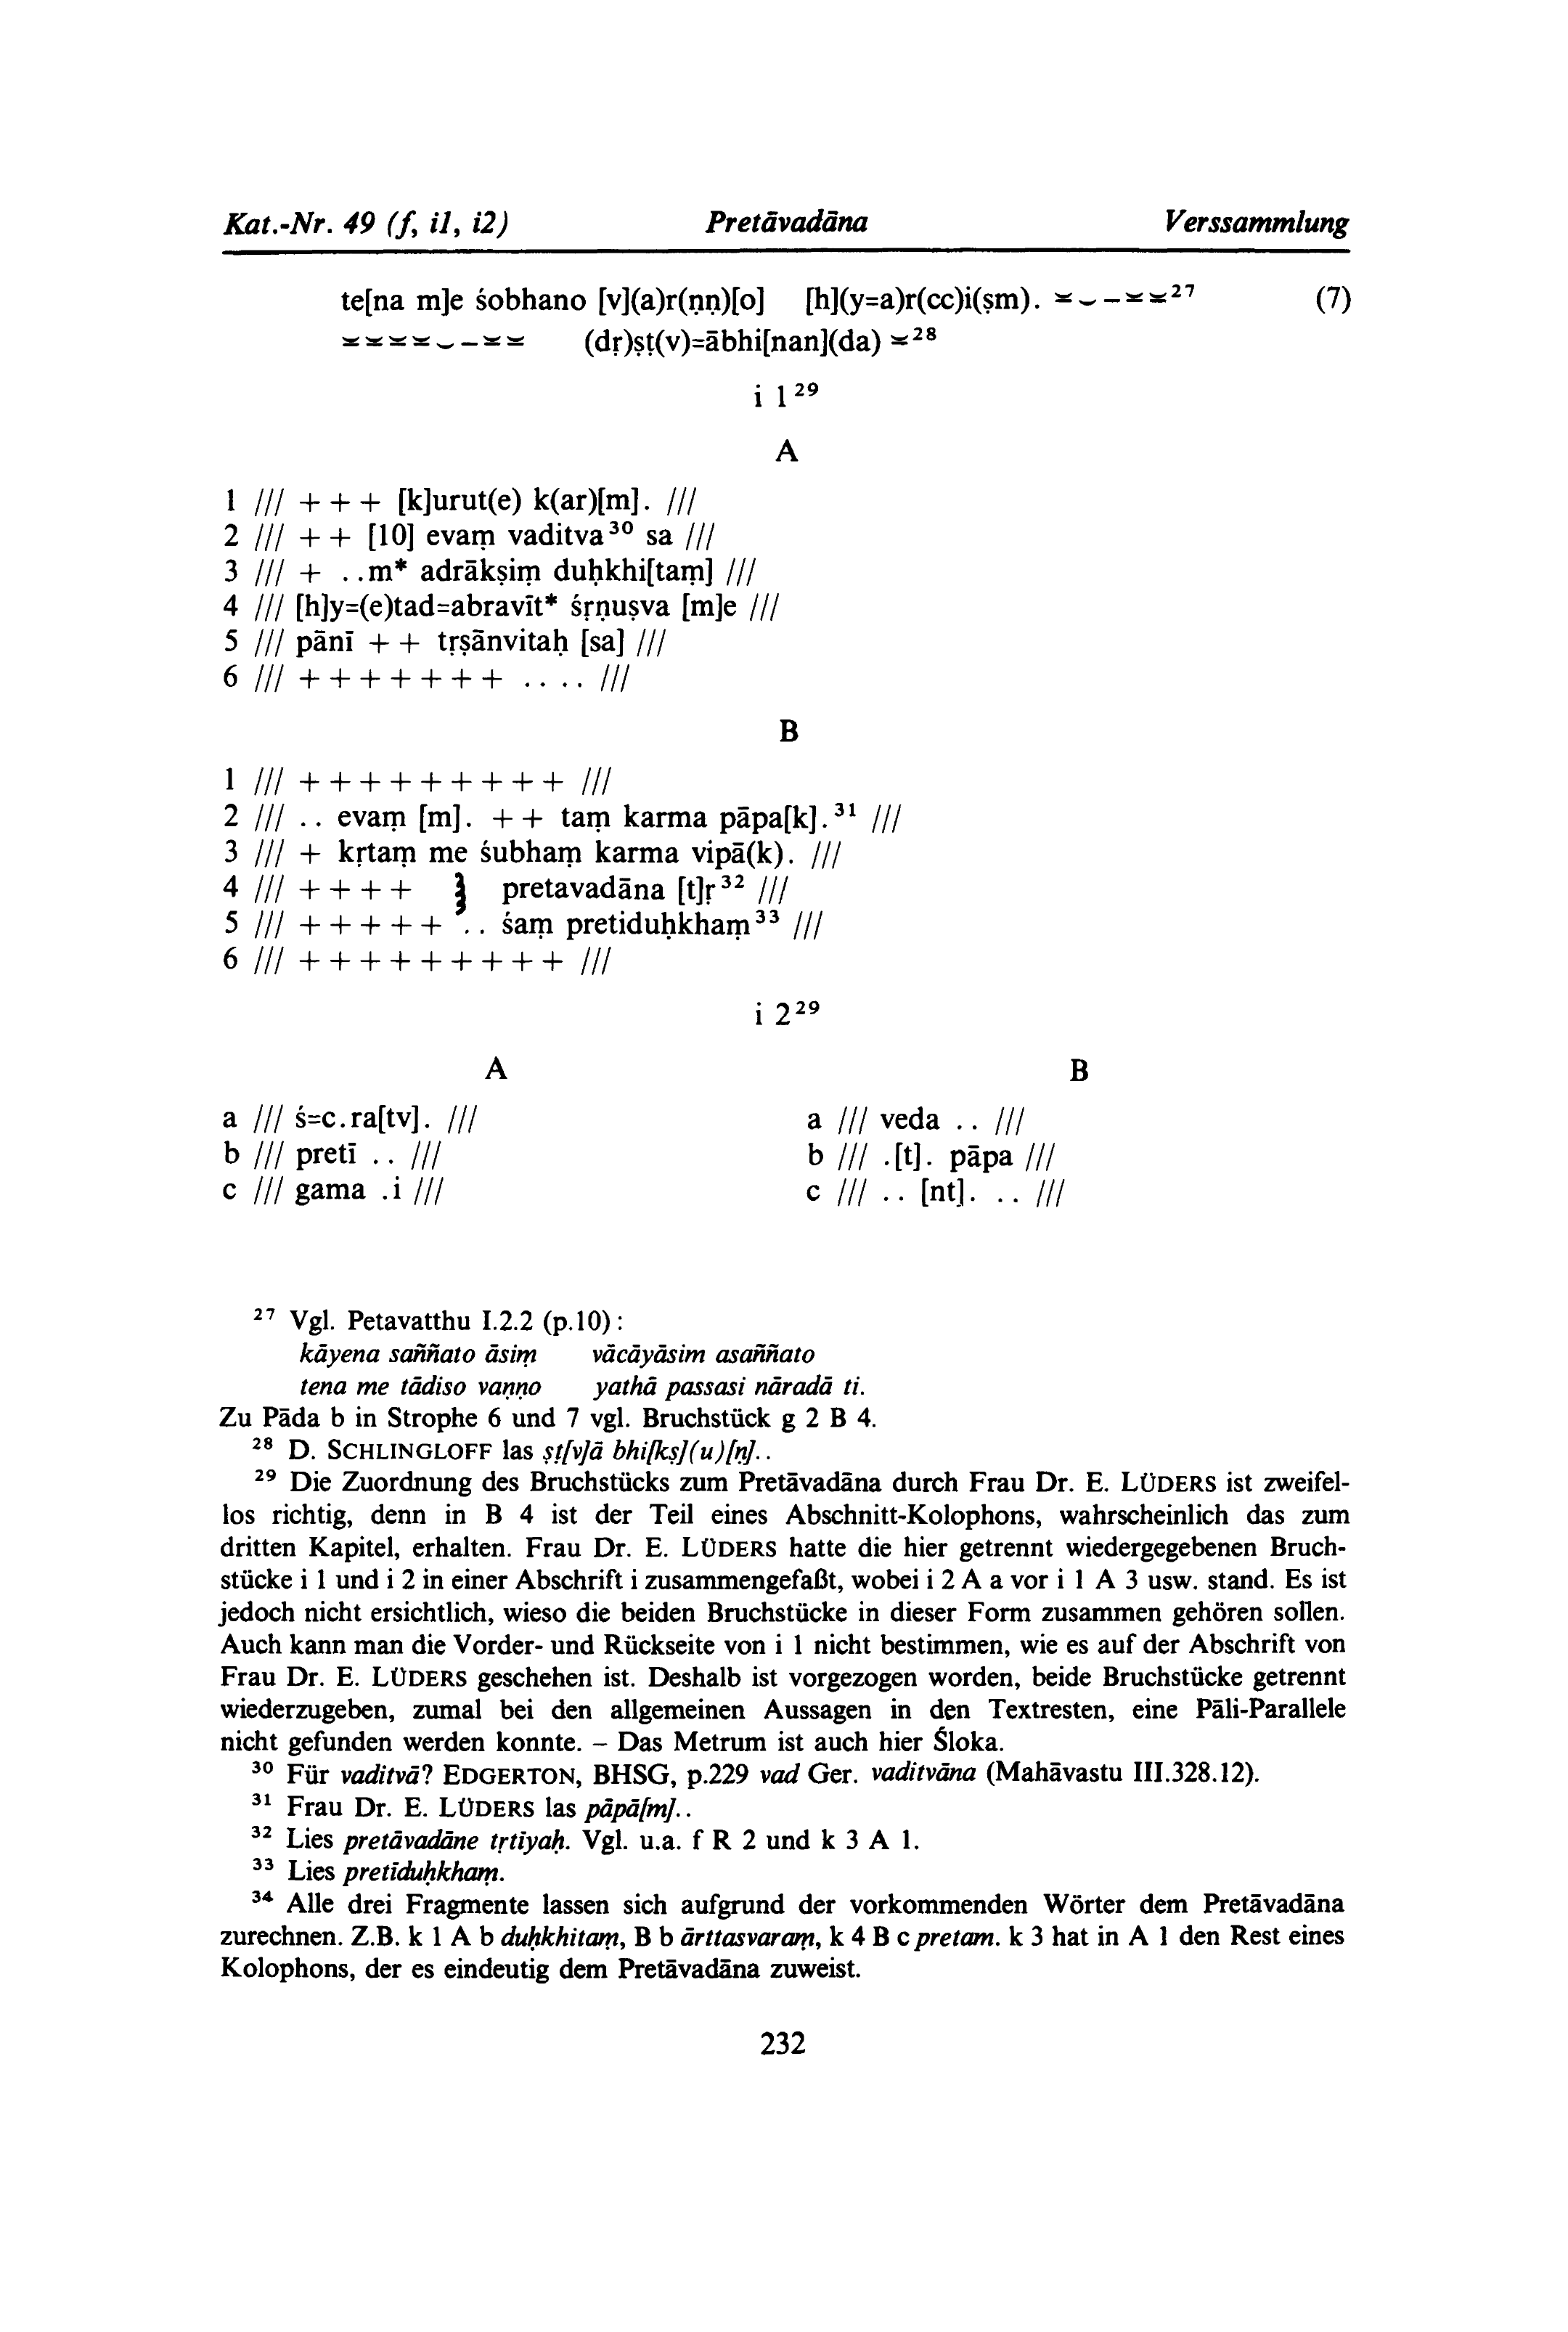 Kat.-Nr. 49 (f, i1, i2) Pretāvadāna Verssammlung
te[na m]e śobhano [v](a)r(ṇṇ)[o] [h](y=a)r(cc)i(ṣm). ⏓⏑–⏓⏓²⁷ (7)
⏓⏓⏓⏓⏑–⏓⏓ (dṛ)ṣṭ(v)=ābhi[nan](da) ⏓²⁸
i 1²⁹
A
1 /// + + + [k]urut(e) k(ar)[m]. ///
2 /// + + [10] evaṃ vaditva³⁰ sa ///
3 /// + ..m* adrākṣiṃ duḥkhi[taṃ] ///
4 /// [h]y=(e)tad=abravīt* śṛṇuṣva [m]e ///
5 /// pānī + + tṛṣānvitaḥ [sa] ///
6 /// + + + + + + + .. .. ///
B
1 /// + + + + + + + + + ///
2 /// .. evaṃ [m]. + + taṃ karma pāpa[k].³¹ ///
3 /// + kṛtaṃ me śubhaṃ karma vipā(k). ///
4 /// + + + + ⁝ pretavadāna [t]ṛ³² ///
5 /// + + + + + .. śaṃ pretiduḥkhaṃ³³ ///
6 /// + + + + + + + + + ///
i 2²⁹
A B
a /// ś=c.ra[tv]. /// a /// veda .. ///
b /// pretī .. /// b /// .[t]. pāpa ///
c /// gama .i /// c /// .. [nt]. .. ///
²⁷ Vgl. Petavatthu I.2.2 (p.10):
kāyena saññato āsiṃ vācāyāsim asaññato
tena me tādiso vaṇṇo yathā passasi nāradā ti.
Zu Pāda b in Strophe 6 und 7 vgl. Bruchstück g 2 B 4.
²⁸ D. SCHLINGLOFF las ṣṭ[v]ā bhi[kṣ](u)[ṇ]..
²⁹ Die Zuordnung des Bruchstücks zum Pretāvadāna durch Frau Dr. E. LÜDERS ist zweifel-
los richtig, denn in B 4 ist der Teil eines Abschnitt-Kolophons, wahrscheinlich das zum
dritten Kapitel, erhalten. Frau Dr. E. LÜDERS hatte die hier getrennt wiedergegebenen Bruch-
stücke i 1 und i 2 in einer Abschrift i zusammengefaßt, wobei i 2 A a vor i 1 A 3 usw. stand. Es ist
jedoch nicht ersichtlich, wieso die beiden Bruchstücke in dieser Form zusammen gehören sollen.
Auch kann man die Vorder- und Rückseite von i 1 nicht bestimmen, wie es auf der Abschrift von
Frau Dr. E. LÜDERS geschehen ist. Deshalb ist vorgezogen worden, beide Bruchstücke getrennt
wiederzugeben, zumal bei den allgemeinen Aussagen in den Textresten, eine Pāli-Parallele
nicht gefunden werden konnte. – Das Metrum ist auch hier Śloka.
³⁰ Für vaditvā? EDGERTON, BHSG, p.229 vad Ger. vaditvāna (Mahāvastu III.328.12).
³¹ Frau Dr. E. LÜDERS las pāpā[m]..
³² Lies pretāvadāne tṛtīyaḥ. Vgl. u.a. f R 2 und k 3 A 1.
³³ Lies pretīduḥkhaṃ.
³⁴ Alle drei Fragmente lassen sich aufgrund der vorkommenden Wörter dem Pretāvadāna
zurechnen. Z.B. k 1 A b duḥkhitaṃ, B b ārttasvaraṃ, k 4 B c pretam. k 3 hat in A 1 den Rest eines
Kolophons, der es eindeutig dem Pretāvadāna zuweist.
232